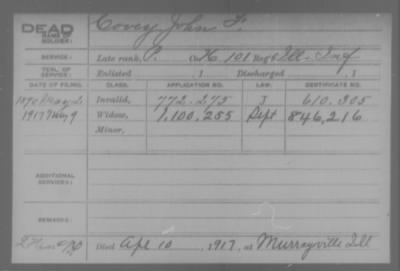 DEAD
NAME OF SOLDIER: Covey, John F.
SERVICE: Late rank, P. Co. K, 101 Reg't Ill. Inf
TERM OF SERVICE: Enlisted , 1 Discharged , 1
DATE OF FILING. CLASS. APPLICATION NO. LAW. CERTIFICATE NO.
1890 May 2 Invalid, 772.275 J 610.305
1917 May 9 Widow, 1,100,255 Sept 846,216
Minor,
ADDITIONAL SERVICES:
REMARKS:
Died Apr 10, 1917, at Murrayville Ill